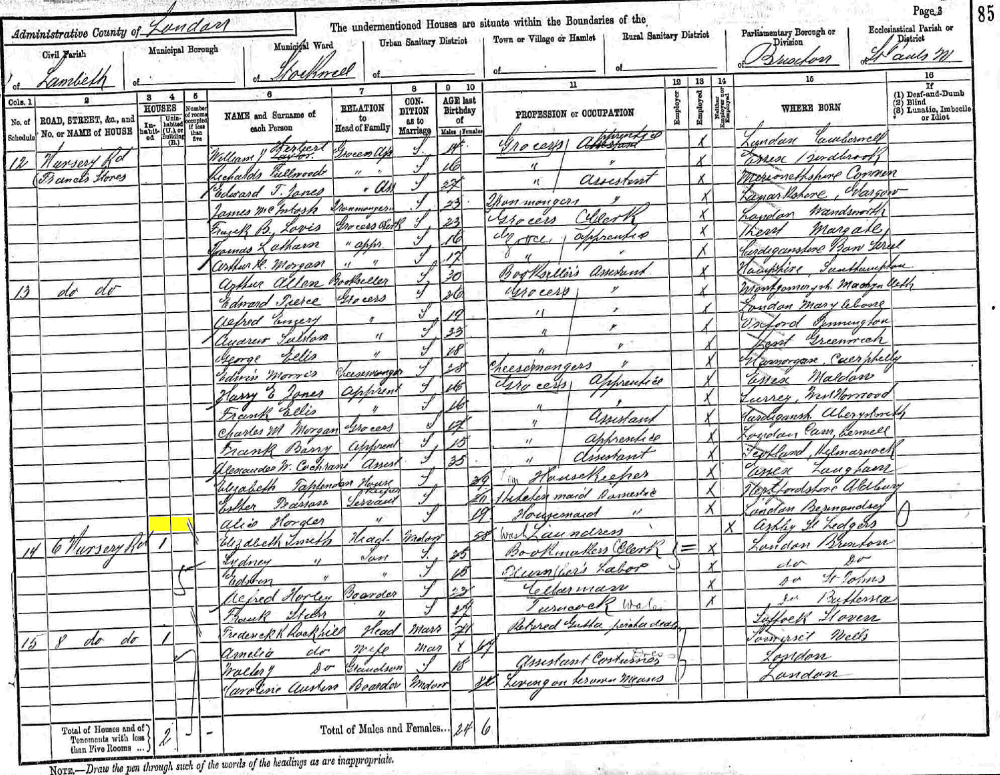 Page 3
85
Administrative County of London
The undermentioned Houses are situate within the Boundaries of the
Civil Parish
of Lambeth
Municipal Borough
of
Municipal Ward
of Stockwell
Urban Sanitary District
of
Town or Village or Hamlet
of
Rural Sanitary District
of
Parliamentary Borough or Division
of Brixton
Ecclesiastical Parish or District
of St Pauls
Cols. 1 2 3 4 5 6 7 8 9 10 11 12 13 14 15 16
No. of Schedule
ROAD, STREET, &c., and No. or NAME of HOUSE
HOUSES
Inhabited
Uninhabited (U.) or Building (B.)
Number of rooms occupied if less than five
NAME and Surname of each Person
RELATION to Head of Family
CONDITION as to Marriage
AGE last Birthday of
Males Females
PROFESSION or OCCUPATION
Employer
Employed
Neither Employer nor Employed
WHERE BORN
If
(1) Deaf-and-Dumb
(2) Blind
(3) Lunatic, Imbecile or Idiot
12 Nursery Rd William Herbert Taylor Grocers S 14 Grocers apprentice X London Camberwell
(Francis Stores Fullwood " " S 16 " X Essex
Edward T. Jones " Ass S 27 " Assistant X Merionethshire Corwen
James McIntosh Ironmongers S 23 Ironmongers " X Lanarkshire, Glasgow
Frank B. Grocers Clerk S 23 Grocers Clerk X London Wandsworth
Thomas Latham " appr S 16 apprentice X Kent Margate
Arthur Morgan " " S 17 " X Cardiganshire
13 do do Arthur Allen Bookseller S 30 Booksellers Assistant X Hampshire Southampton
Edward Pierce Grocers S 26 Grocers " X Machynlleth
Alfred Emery " S 19 " " X London Marylebone
Andrew " S 23 " " X Oxford
George Ellis " S 18 " " X Kent Greenwich
Edwin Morris Cheesemonger S 28 Cheesemongers " X Glamorgan, Caerphilly
Harry E Jones Apprent S 16 Grocers Apprentice X Essex Maldon
Frank Ellis " S 16 " " X Surrey, West Norwood
Charles M Morgan Grocers S 17 " Assistant X Cardigansh Aberystwith
Frank Barry Apprent S 15 " Apprentice X London Camberwell
Alexander W. Cochrane Assist S 35 " Assistant X Scotland, Kilmarnock
Elizabeth House Keeper S 29 Housekeeper X Essex Langham
Esther Pearson Servant S 20 Kitchen maid Domestic X Hertfordshire Aldbury
Alice " S 19 Housemaid " X London Bermondsey
14 6 Nursery Rd 1 Elizabeth Smith Head Widow 58 Laundress X Ashby St Ledgers
Sydney " Son S 25 Bookmakers Clerk X London Brixton
Edwin " " S 15 Labor X do Do
Alfred Horley Boarder S 23 Cellarman X Do St Johns
Frank " S 27 Turncock X Do Battersea
15 8 do do 1 Frederick Head Marr 71 Retired Gutta percha dealer Suffolk Stoven
Amelia do Wife Mar 67 Somerset Wells
Walter Do Grandson S 18 Assistant Costumier London
Caroline Austin Boarder Widow 82 Living on her own Means London
Total of Houses and of Tenements with less than Five Rooms ... 2 - -
Total of Males and Females... 24 6
NOTE.—Draw the pen through such of the words of the headings as are inappropriate.